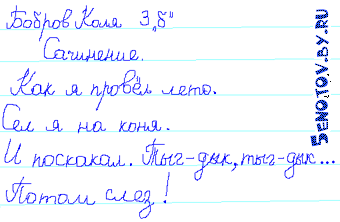 Бобров Коля 3 „б"
Сачинение.
Как я провёл лето.
Сел я на коня.
И поскакал. Тыг-дык, тыг-дык...
Потом слез!
5ENOTOV.BY.RU